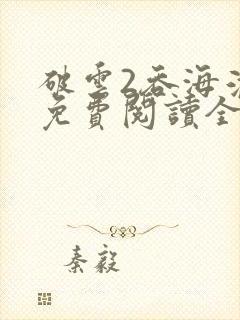 破雲2吞海
免費閱讀全
秦毅